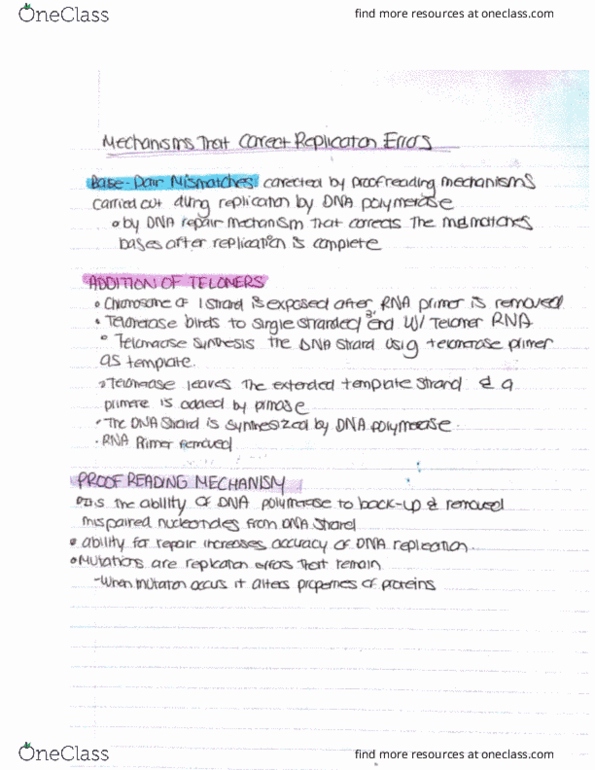 OneClass
find more resources at oneclass.com
Mechanisms That Correct Replication Errors
Base-Pair Mismatches: corrected by proofreading mechanisms
carried out during replication by DNA polymerase
by DNA repair mechanism that corrects the mismatches
bases after replication is complete
ADDITION OF TELONERS
• Chromosome of 1 strand is exposed after RNA primer is removed
• Telomerase binds to single stranded 3' end w/ Teloner RNA
• Telomerase synthesis the DNA strand using telomerase primer
as template.
Telomerase leaves the extended template strand & a
primere is added by primase
• The DNA strand is synthesized by DNA polymerase.
• RNA Primer removed
PROOF READING MECHANISM
is the ability of DNA polymerase to back-up & removed
mispaired nucleotides from DNA strand
• ability for repair increases accuracy of DNA replication.
• Mutations are replication errors that remain
- when mutation occurs it alters properties of proteins
OneClass
find more resources at oneclass.com